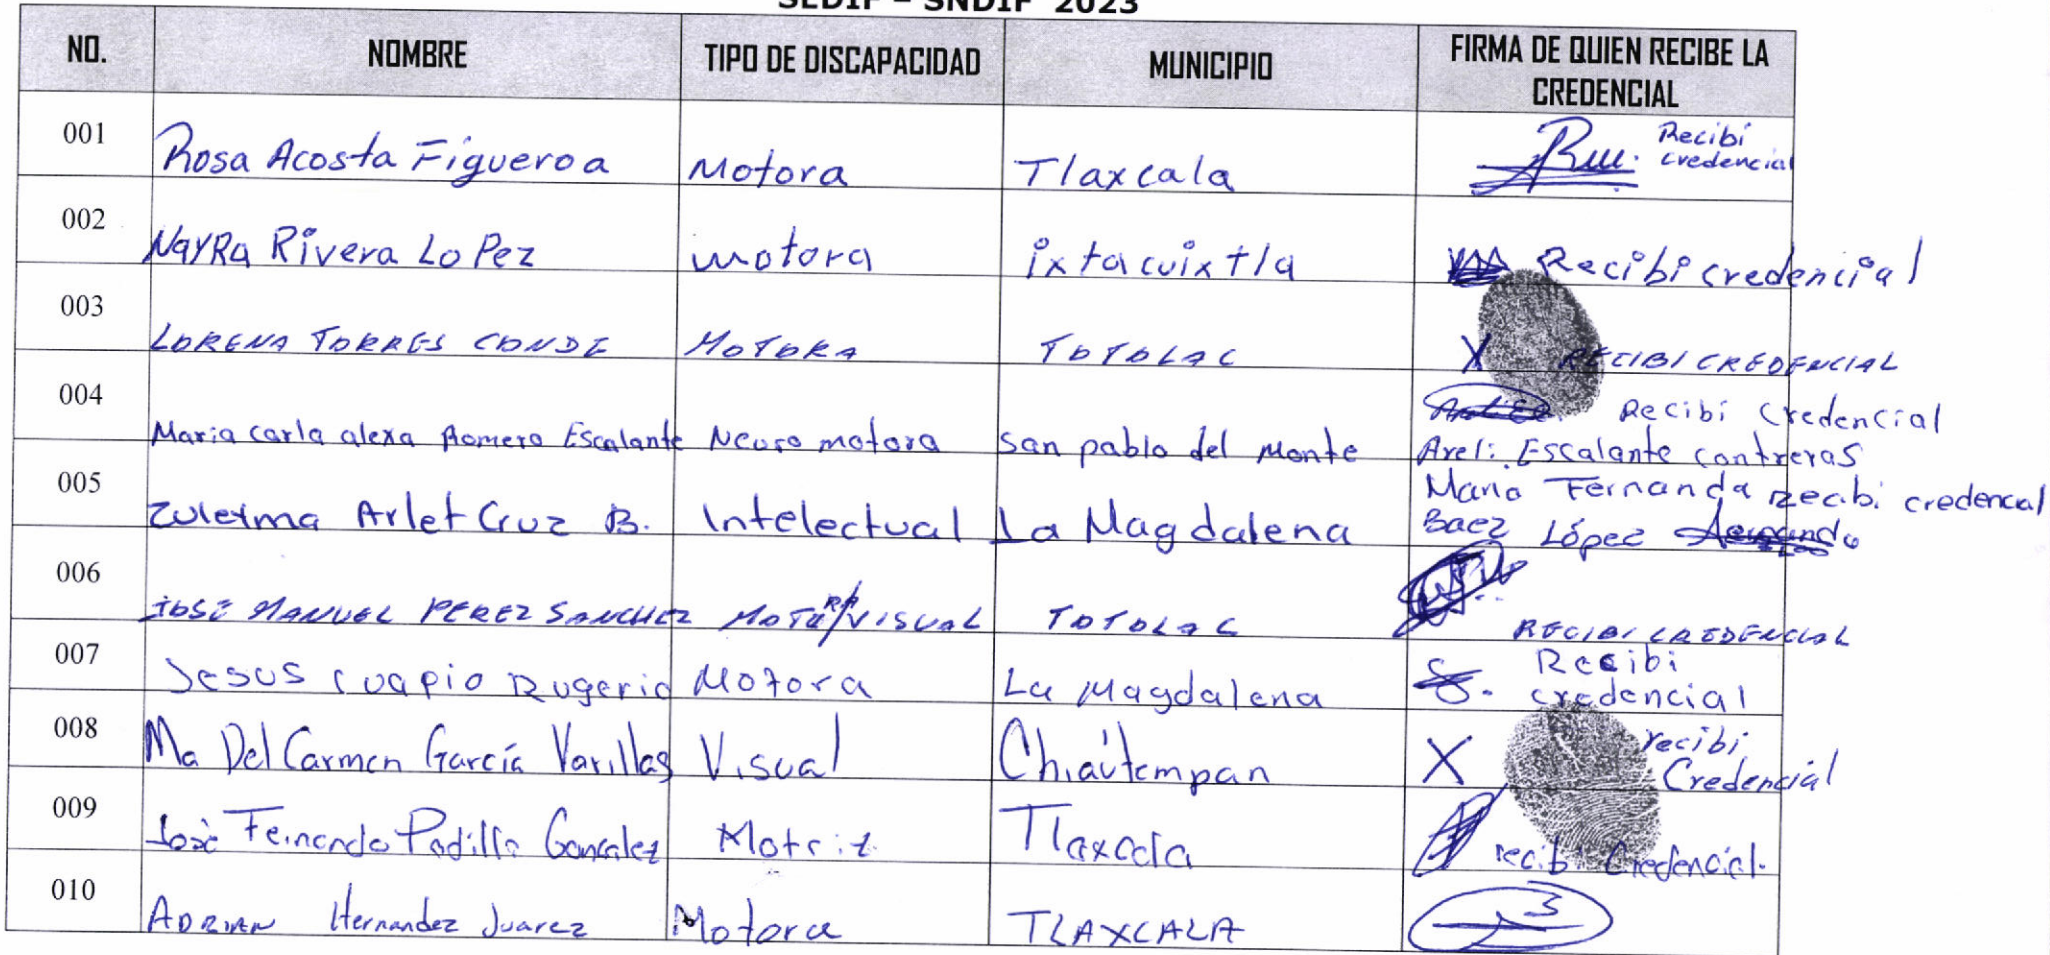 SEDIF – SNDIF 2023
NO. NOMBRE TIPO DE DISCAPACIDAD MUNICIPIO FIRMA DE QUIEN RECIBE LA CREDENCIAL
001 Rosa Acosta Figueroa Motora Tlaxcala Recibi credencial
002 NayRa Rivera LoPez motora ixtacuixtla Recibi credencial
003 LORENA TORRES CONDE MOTORA TOTOLAC X RECIBI CREDENCIAL
004 Maria carla alexa Romero Escalante Neuro motora San pablo del Monte Recibí Credencial
Areli Escalante contreras
005 Zuleima Arlet Cruz B. Intelectual La Magdalena Maria Fernanda recibi credencal
Baez López
006 JOSE MANUEL PEREZ SANCHEZ MOTORA/VISUAL TOTOLAC RECIBI CREDENCIAL
007 Jesus Cuapio Rugerio Motora La Magdalena Recibi
credencial
008 Ma Del Carmen García Varillas Visual Chiautempan X recibi
Credencial
009 José Fernando Padilla Gonzalez Motriz Tlaxcala recibi Credencial.
010 ADRIAN Hernandez Juarez Motora TLAXCALA